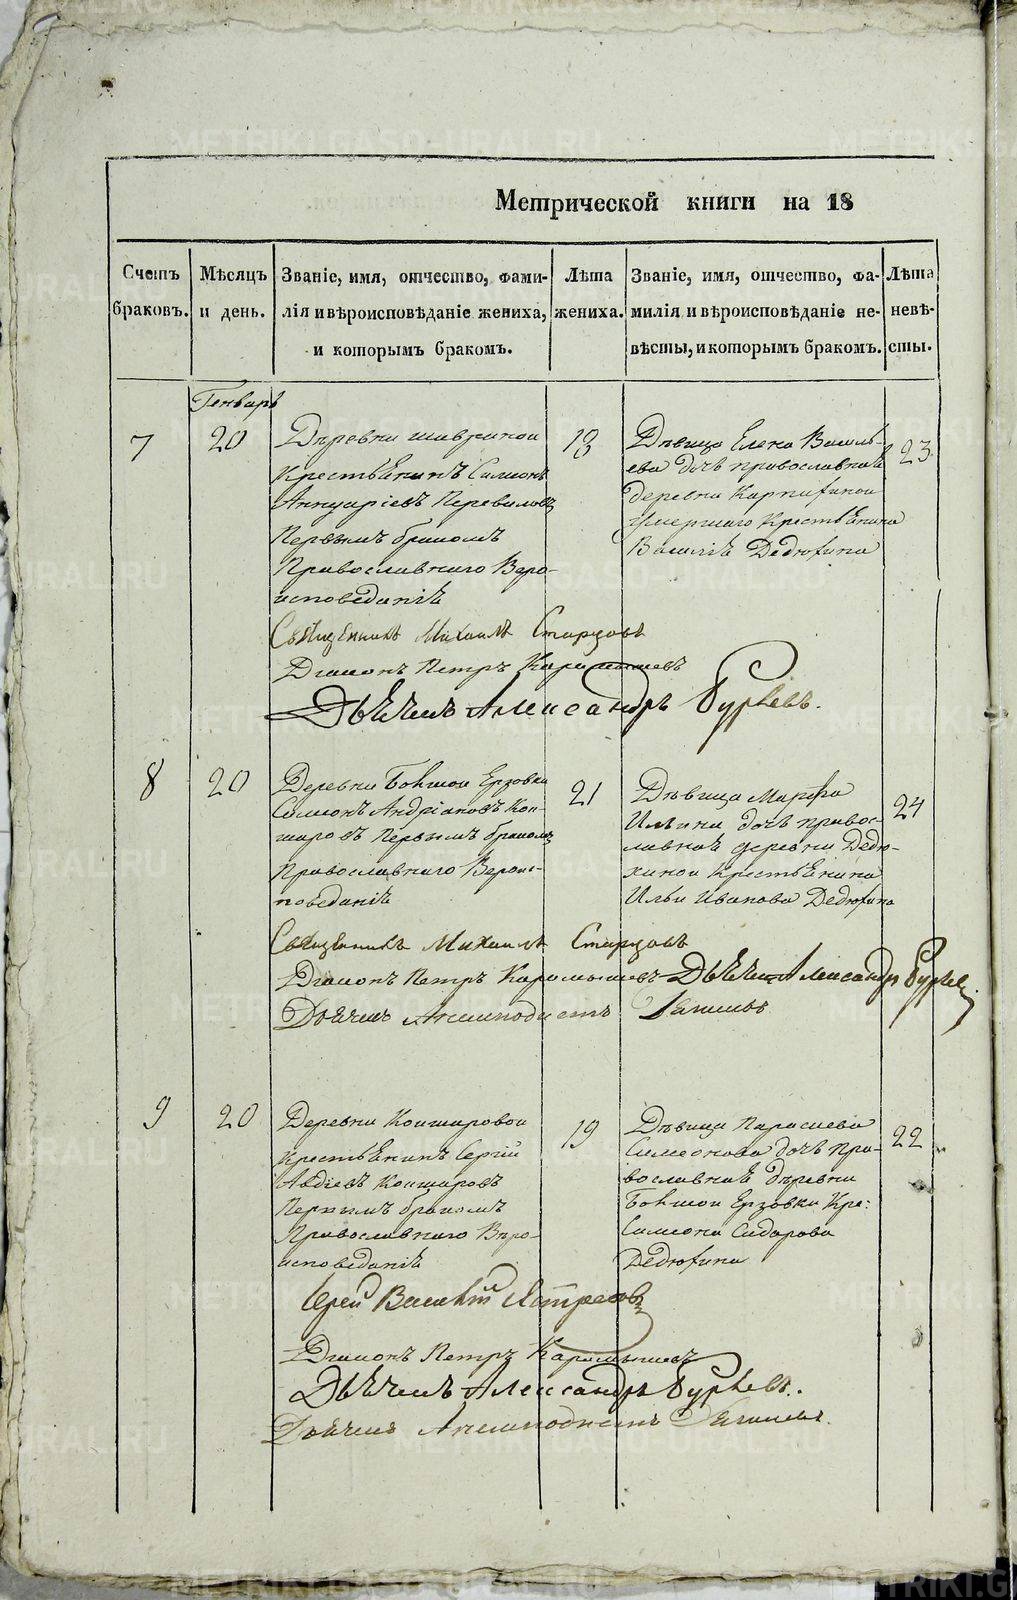 Метрической книги на 18
Счетъ браковъ.
Мѣсяцъ и день.
Званіе, имя, отчество, фами-
лія и вѣроисповѣданіе жениха,
и которымъ бракомъ.
Лѣта
жениха.
Званіе, имя, отчество, фа-
милія и вѣроисповѣданіе не-
вѣсты, и которымъ бракомъ.
Лѣта
невѣ-
сты.
Генварь
7
20
Деревни
Крестьянинъ Симіонъ
Переваловъ
Первымъ бракомъ
Православнаго Веро-
исповеданія
18
Дѣвица Елена Василь-
ева дочь православная
деревни
умершаго Крестьянина
Василія Дедюхина
23
Священникъ Михаилъ Старцовъ
Діаконъ Петръ Карамышевъ
Дьячекъ Александръ Гурьевъ.
8
20
Деревни Большой Ерзовки
Симіонъ Андріановъ Кок-
шаровъ Первымъ бракомъ
Православнаго Вероис-
поведанія
21
Дѣвица Марфа
Ильина дочь правос-
лавная деревни Дедю-
хиной Крестьянина
Ильи Иванова Дедюхина
24
Священникъ Михаилъ Старцовъ
Діаконъ Петръ Карамышевъ Дьячекъ Александръ Гурьев.
Дьячекъ
9
20
Деревни Кокшаровой
Крестьянинъ Сергій
Авдіевъ Кокшаровъ
Первымъ бракомъ
Православнаго Веро-
исповеданія
19
Дѣвица Параскева
Симеонова дочь пра-
вославная деревни
Большой Ерзовки Кре:
Симіона Сидорова
Дедюхина
22
Іерей Василій Ястребовъ
Діаконъ Петръ Карамышевъ
Дьячекъ Александръ Гурьевъ.
Дьячекъ
METRIKI.GASO-URAL.RU